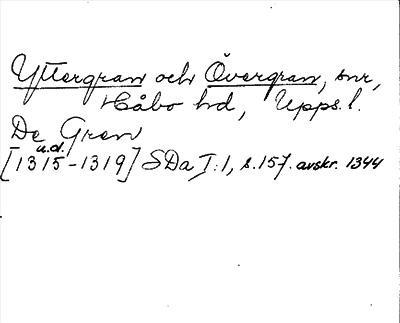 Yttergran och Övergran, snr,
Håbo hd, Upps. l.
De Gran
u.d.
[1315-1319] SDa I:1, s. 157. avskr. 1344